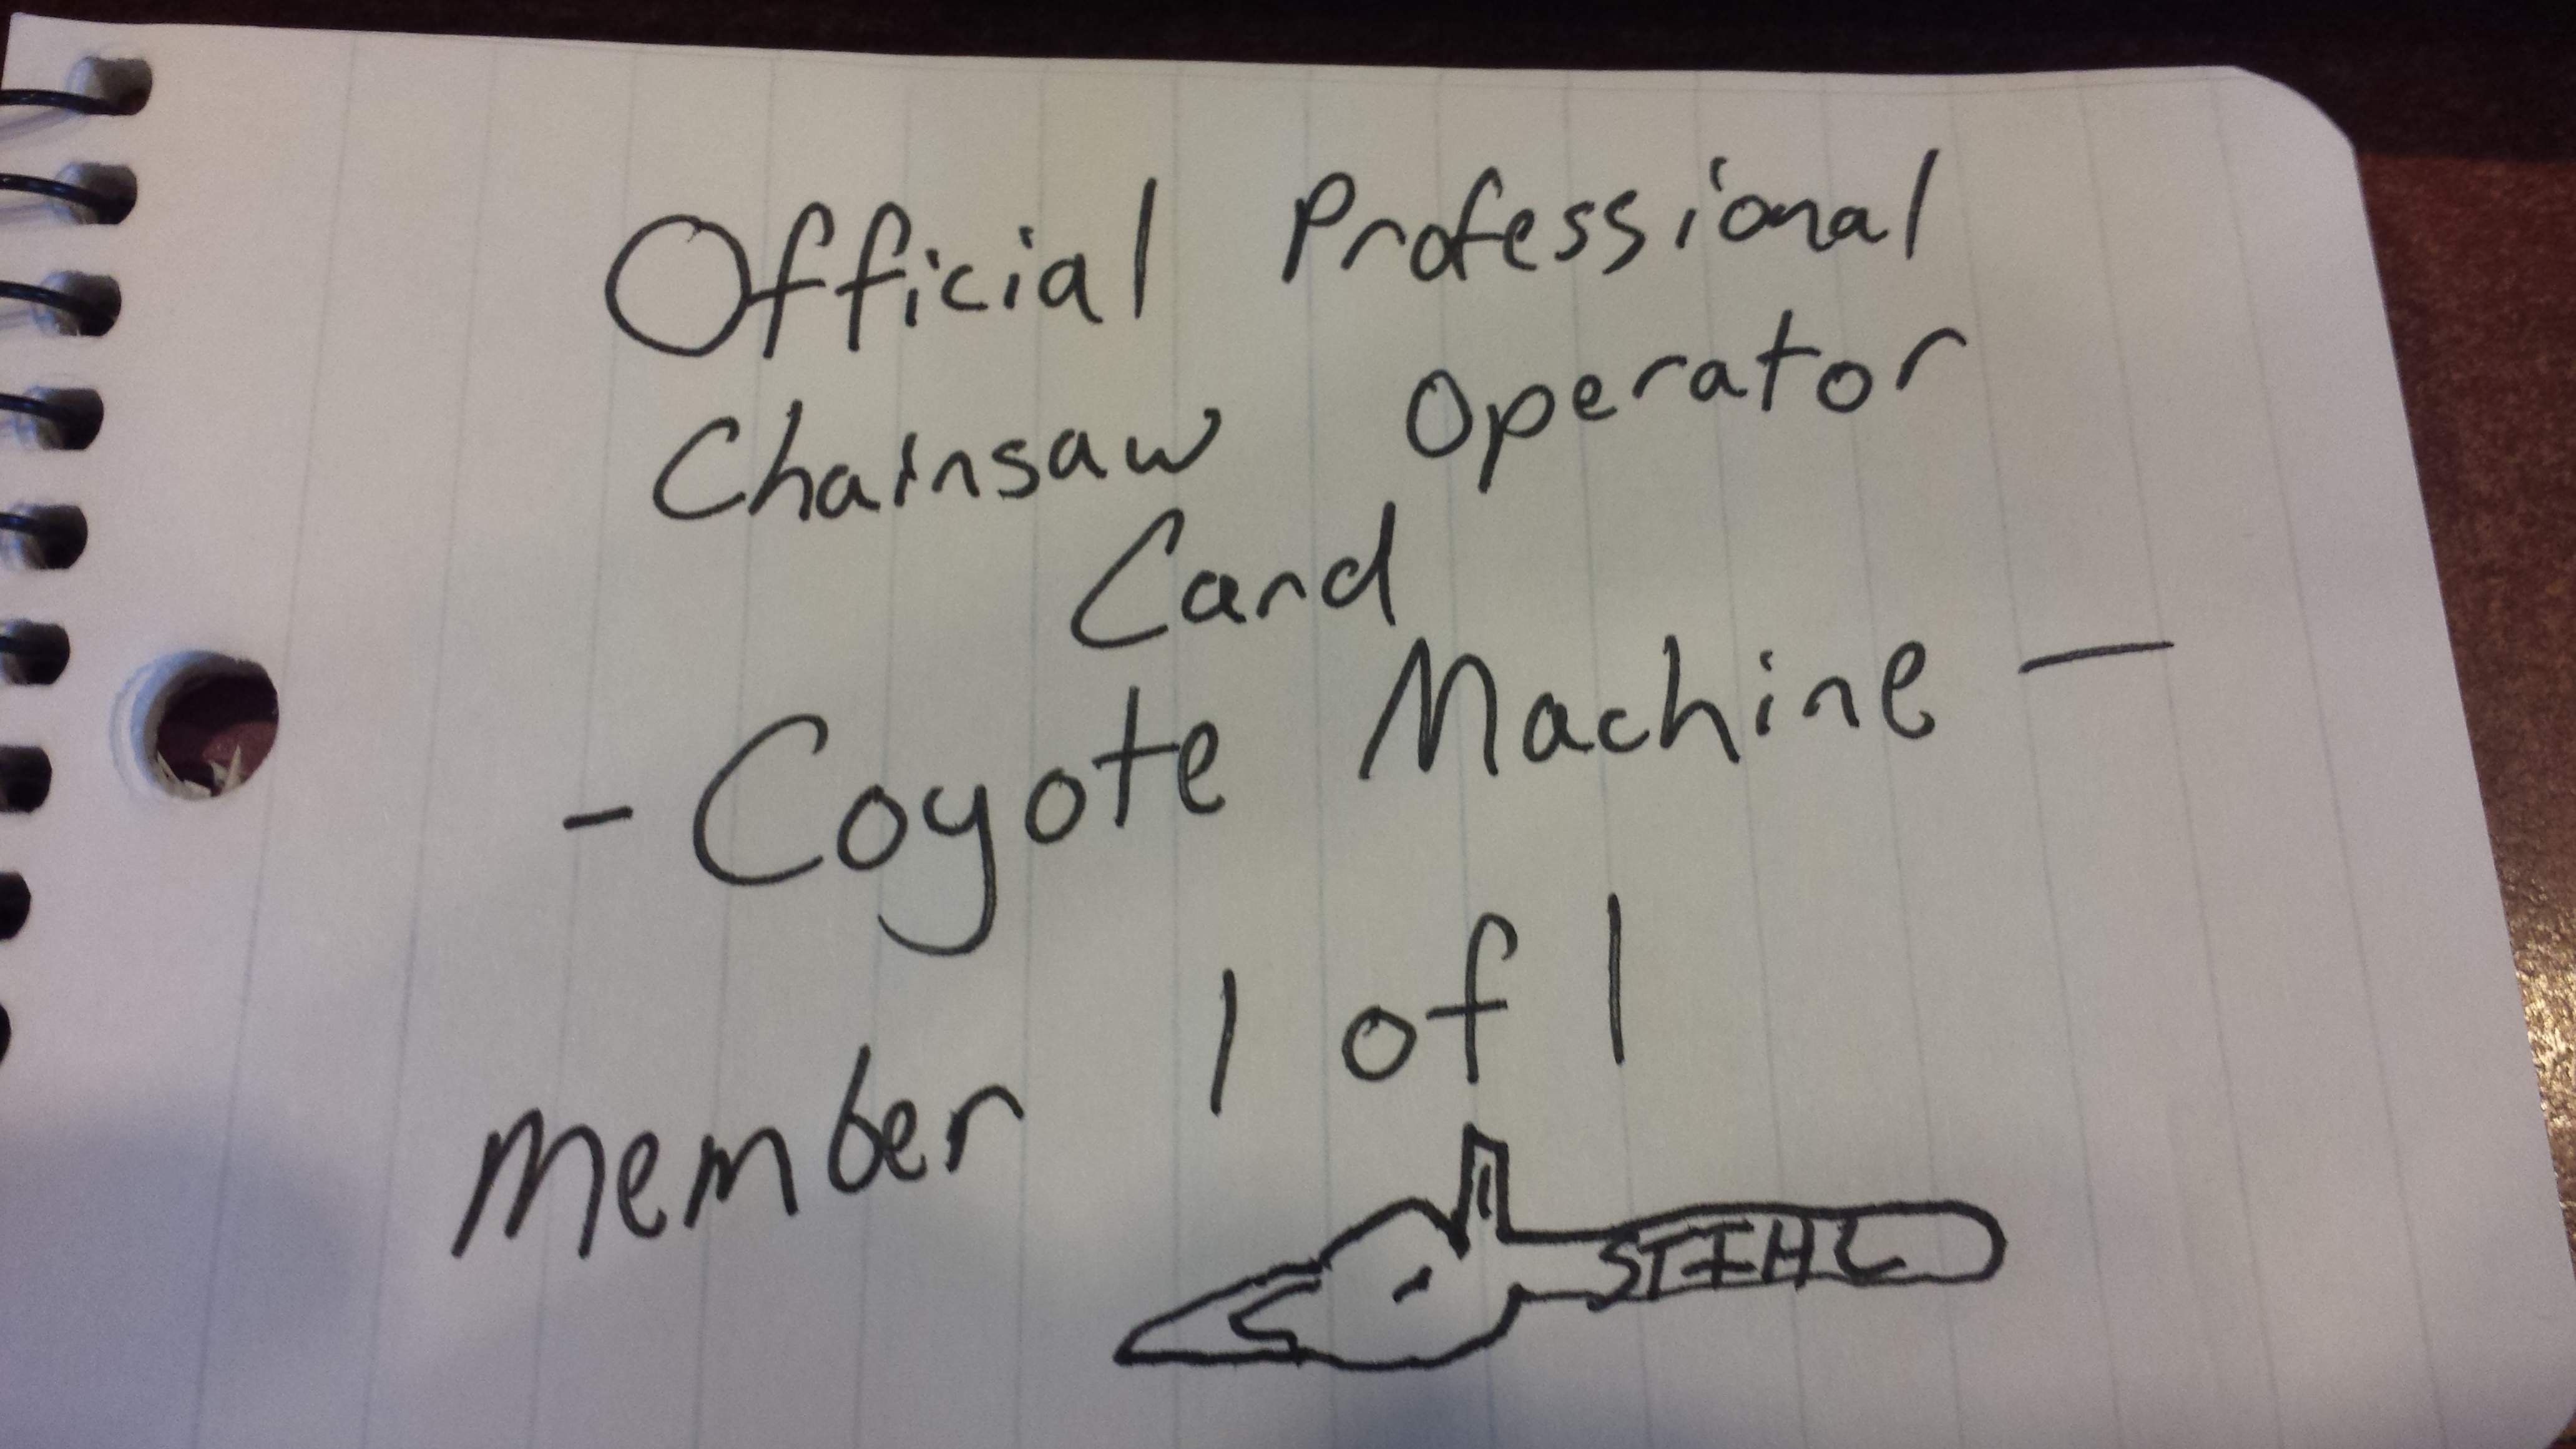 Official Professional
Chainsaw Operator
Card
- Coyote Machine -
member 1 of 1
STIHL